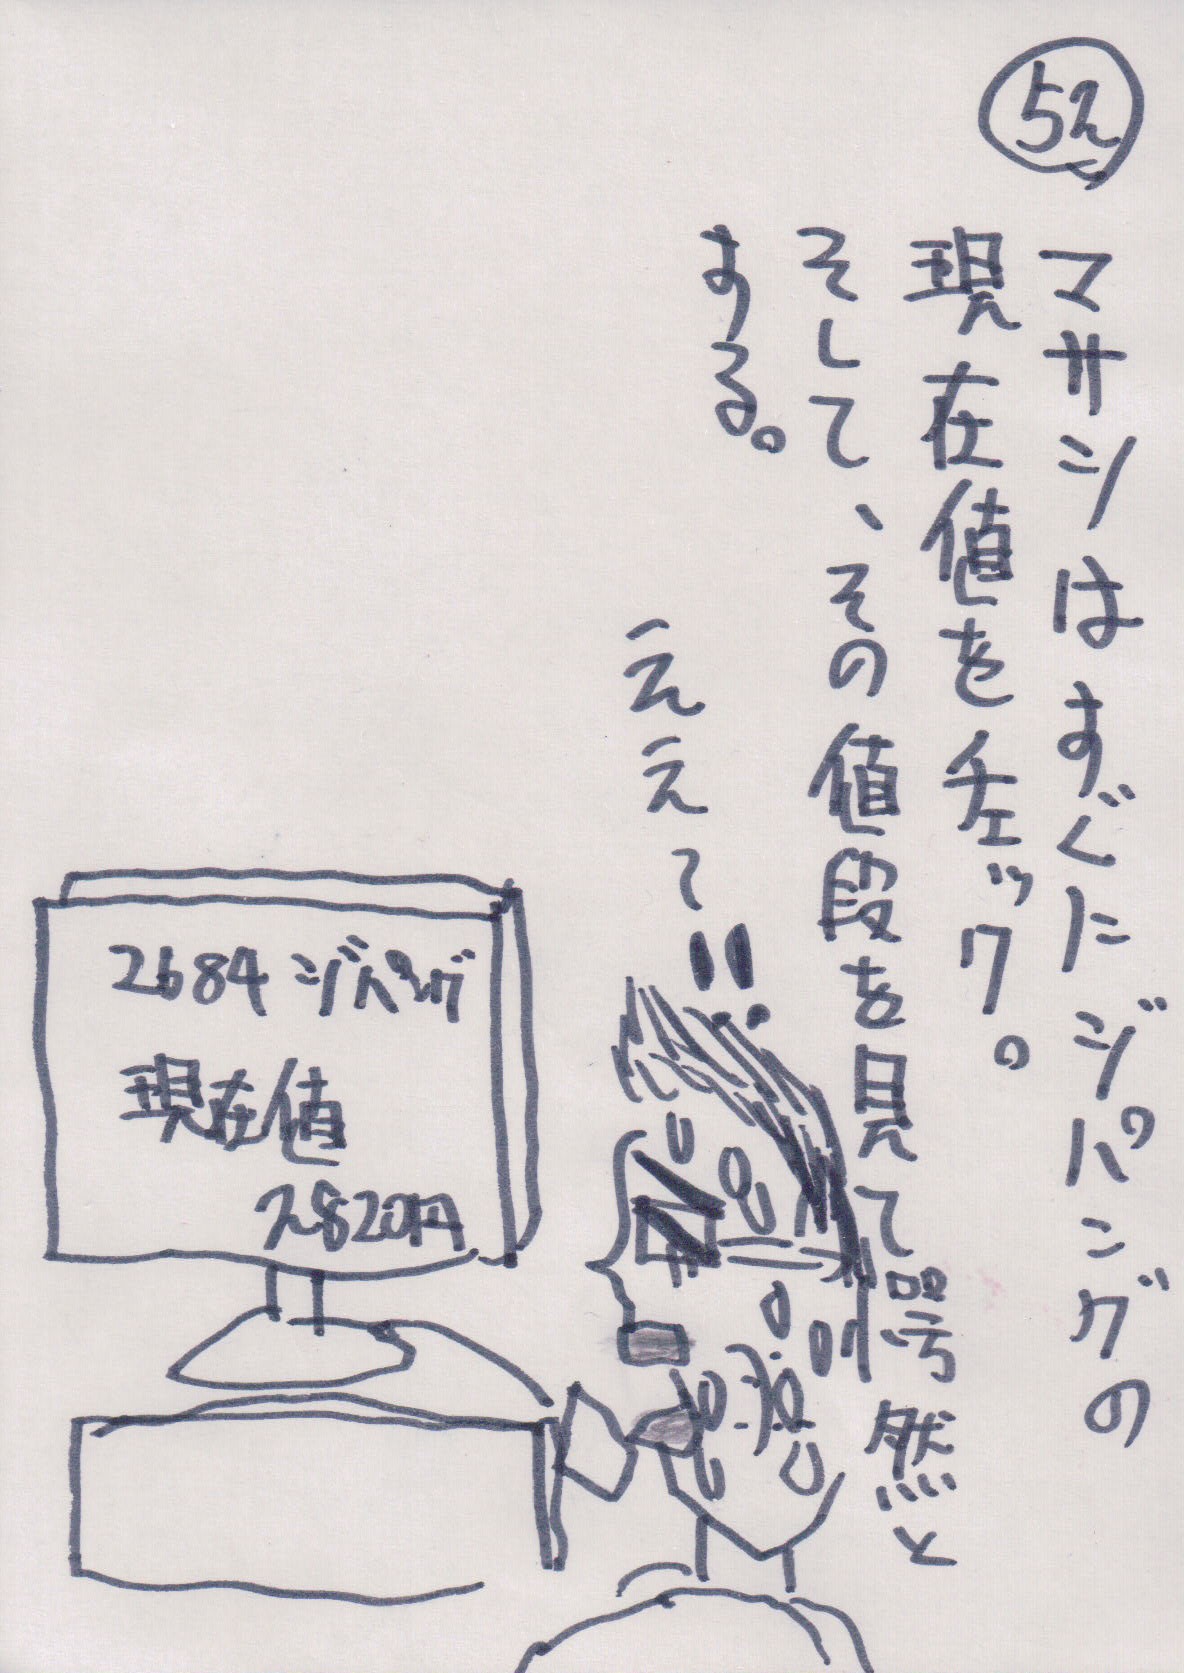 52
マサシはすぐにジパングの
現在値をチェック。
そして、その値段を見て愕然と
する。
ええっ!!
2684 ジパング
現在値
2820円